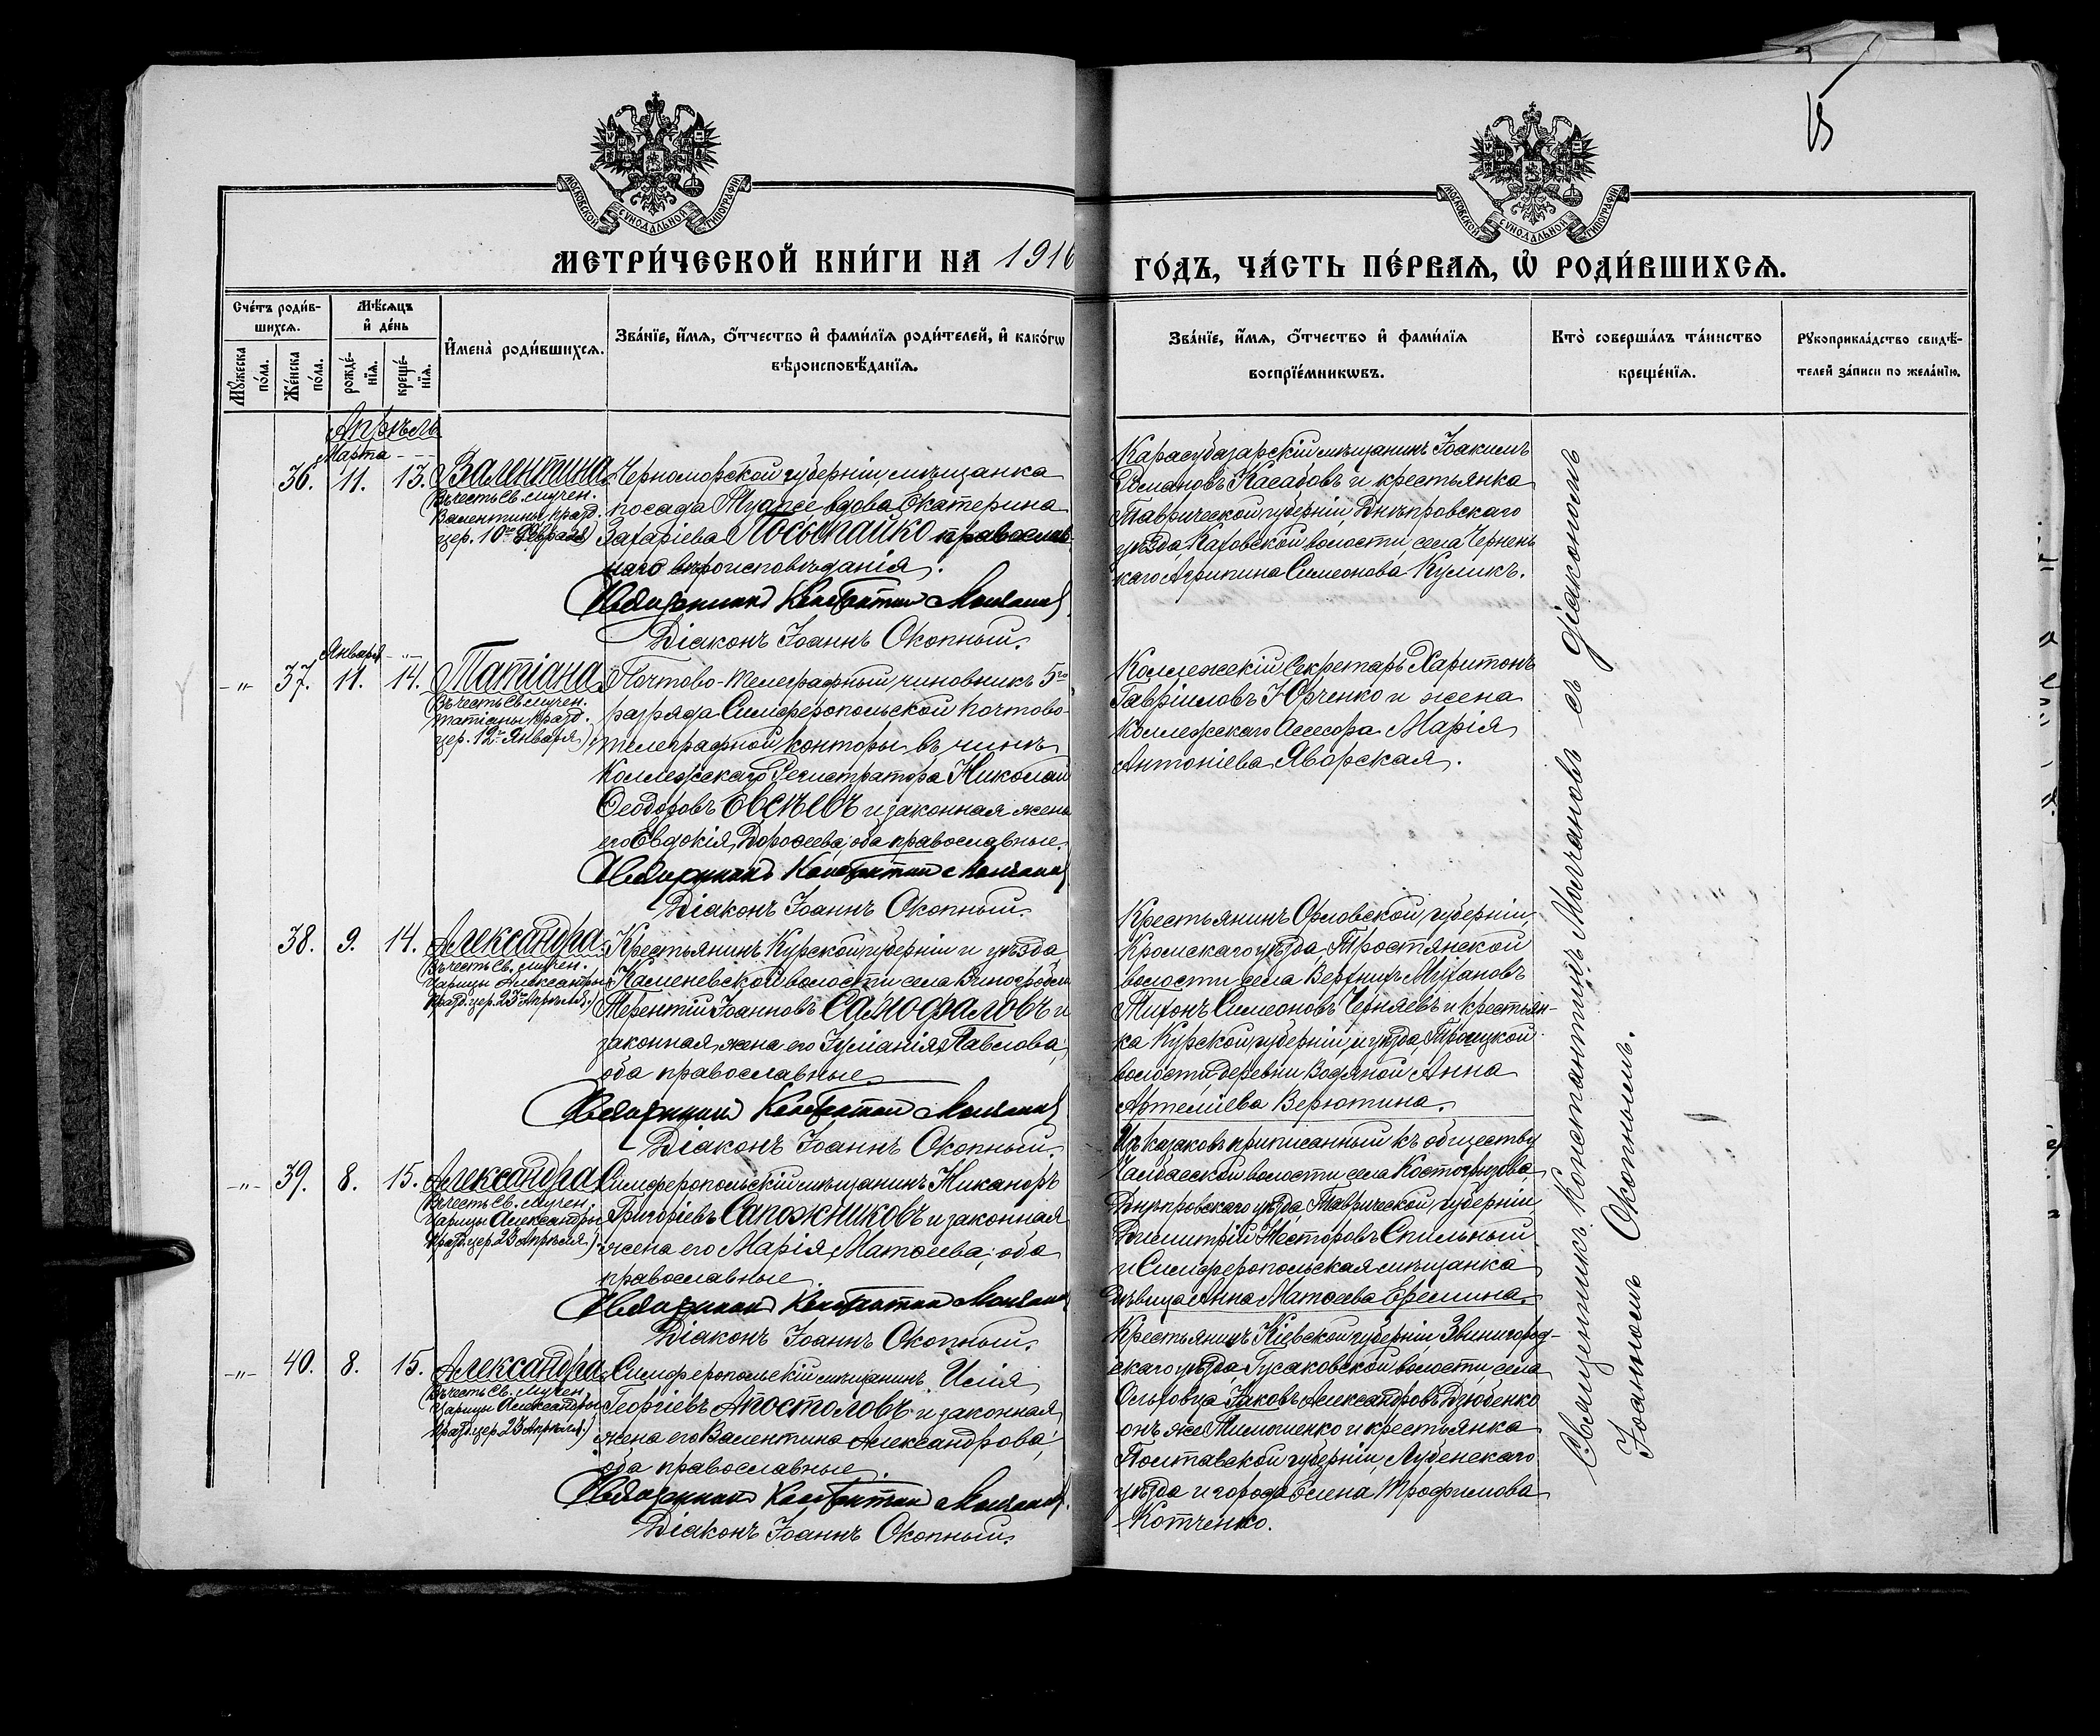 15
МОСКОВСКОЙ СѴНОДАЛЬНОЙ ТИПОГРАФІИ
МОСКОВСКОЙ СѴНОДАЛЬНОЙ ТИПОГРАФІИ
МЕТРИ́ЧЕСКОЙ КНИ́ГИ НА 1916
ГО́ДЪ, ЧА́СТЬ ПЕ́РВАЯ, Ѡ҆ РОДИ́ВШИХСЯ.
Сче́тъ роди́в-
шихся.
Мѣ́сяцъ
и҆ де́нь
Му́жеска
по́ла.
Же́нска
по́ла.
рожде́-
нїя.
креще́-
нїя.
И҆мена̀ роди́вшихся.
Зва́нїе, и҆́мя, ѻ҆́тчество и҆ фами́лїя роди́телей, и҆ како́гѡ
вѣроисповѣ́данїя.
Зва́нїе, и҆́мя, ѻ҆́тчество и҆ фами́лїя
воспрїе́мникѡвъ.
Кто̀ соверша́лъ та́инство
креще́нїя.
Рꙋкоприкла́дство свидѣ́-
телей за́писи по жела́нїю.
Апрѣль
Марта
36. 11. 13. Валентина
(Въ честь Св. мучен.
Валентины, празд.
цер. 10го Февраля)
Черноморской губерніи, мѣщанка
посада Туапсе вдова Екатерина
Захаріева Посыпайко православ-
наго вѣроисповѣданія.
Священникъ Константинъ Молчановъ
Діаконъ Іоаннъ Окопный.
Карасубазарскій мѣщанинъ Іоакимъ
Романовъ Касабовъ и крестьянка
Таврической губерніи, Днѣпровскаго
уѣзда, Каховской волости, села Чернень-
каго Агрипина Симеонова Куликъ.
Января
-„- 37. 11. 14. Татіана
(Въ честь Св. мучен.
Татіаны, празд.
цер. 12го Января)
Почтово-телеграфный чиновникъ 5го
разряда Симферопольской почтово-
телеграфной конторы въ чинѣ
Коллежскаго Регистратора Николай
Ѳеодоровъ Евсѣевъ и законная жена
его Евдокія Дороѳеева, оба православные.
Священникъ Константинъ Молчановъ
Діаконъ Іоаннъ Окопный.
Коллежскій Секретарь Харитонъ
Гавріиловъ Юрченко и жена
Коллежскаго Асессора Марія
Антоніева Яворская.
38. 9. 14. Александра
(Въ честь Св. мучен.
Царицы Александры
празд. цер. 23го Апрѣля.)
Крестьянинъ Курской губерніи и уѣзда
Каменевской волости села Виногробли
Терентій Іоанновъ Самофаловъ и
законная жена его Іуліанія Павлова,
оба православные
Священникъ Константинъ Молчановъ
Діаконъ Іоаннъ Окопный.
Крестьянинъ Орловской губерніи,
Кромскаго уѣзда, Тростянской
волости села Верхнихъ Мухановъ
Тихонъ Симеоновъ Черняевъ и крестьян-
ка Курской губерніи, и уѣзда, Троицкой
волости деревни Водяной Анна
Артеміева Верютина.
-„- 39. 8. 15. Александра
(Въ честь Св. мучен.
Царицы Александры
празд. цер. 23 Апрѣля.)
Симферопольскій мѣщанинъ Никаноръ
Григоріевъ Сапожниковъ и законная
жена его Марія Матѳеева, оба
православные
Священникъ Константинъ Молчановъ
Діаконъ Іоаннъ Окопный.
Изъ казаковъ приписанный къ обществу
волости села Костогрызова,
Днѣпровскаго уѣзда, Таврической губерніи
Димитрій Несторовъ Спильный
и Симферопольская мѣщанка
дѣвица Анна Матѳеева Еремина.
-„- 40. 8. 15. Александра
(Въ честь Св. мучен.
Царицы Александры
празд. цер. 23 Апрѣля.)
Симферопольскій мѣщанинъ Илія
Георгіевъ Апостоловъ и законная
жена его Валентина Александрова,
оба православные.
Священникъ Константинъ Молчановъ
Діаконъ Іоаннъ Окопный.
Крестьянинъ Кіевской губерніи Звенигород-
скаго уѣзда, Гусаковской волости, села
Ольховца Іаковъ Александровъ Дзюбенко
онъ же Тимошенко и крестьянка
Полтавской губерніи, Лубенскаго
уѣзда и города Елена Трофимова
Котченко.
Священникъ Константинъ Молчановъ съ діакономъ
Іоанномъ Окопнымъ.